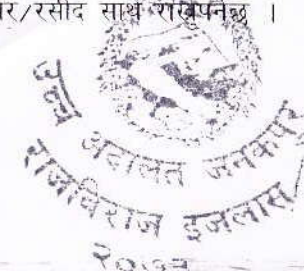 र/रसीद साथ राख्नुपर्नेछ ।
उच्च अदालत जनकपुर
राजविराज इजलास
२०७३